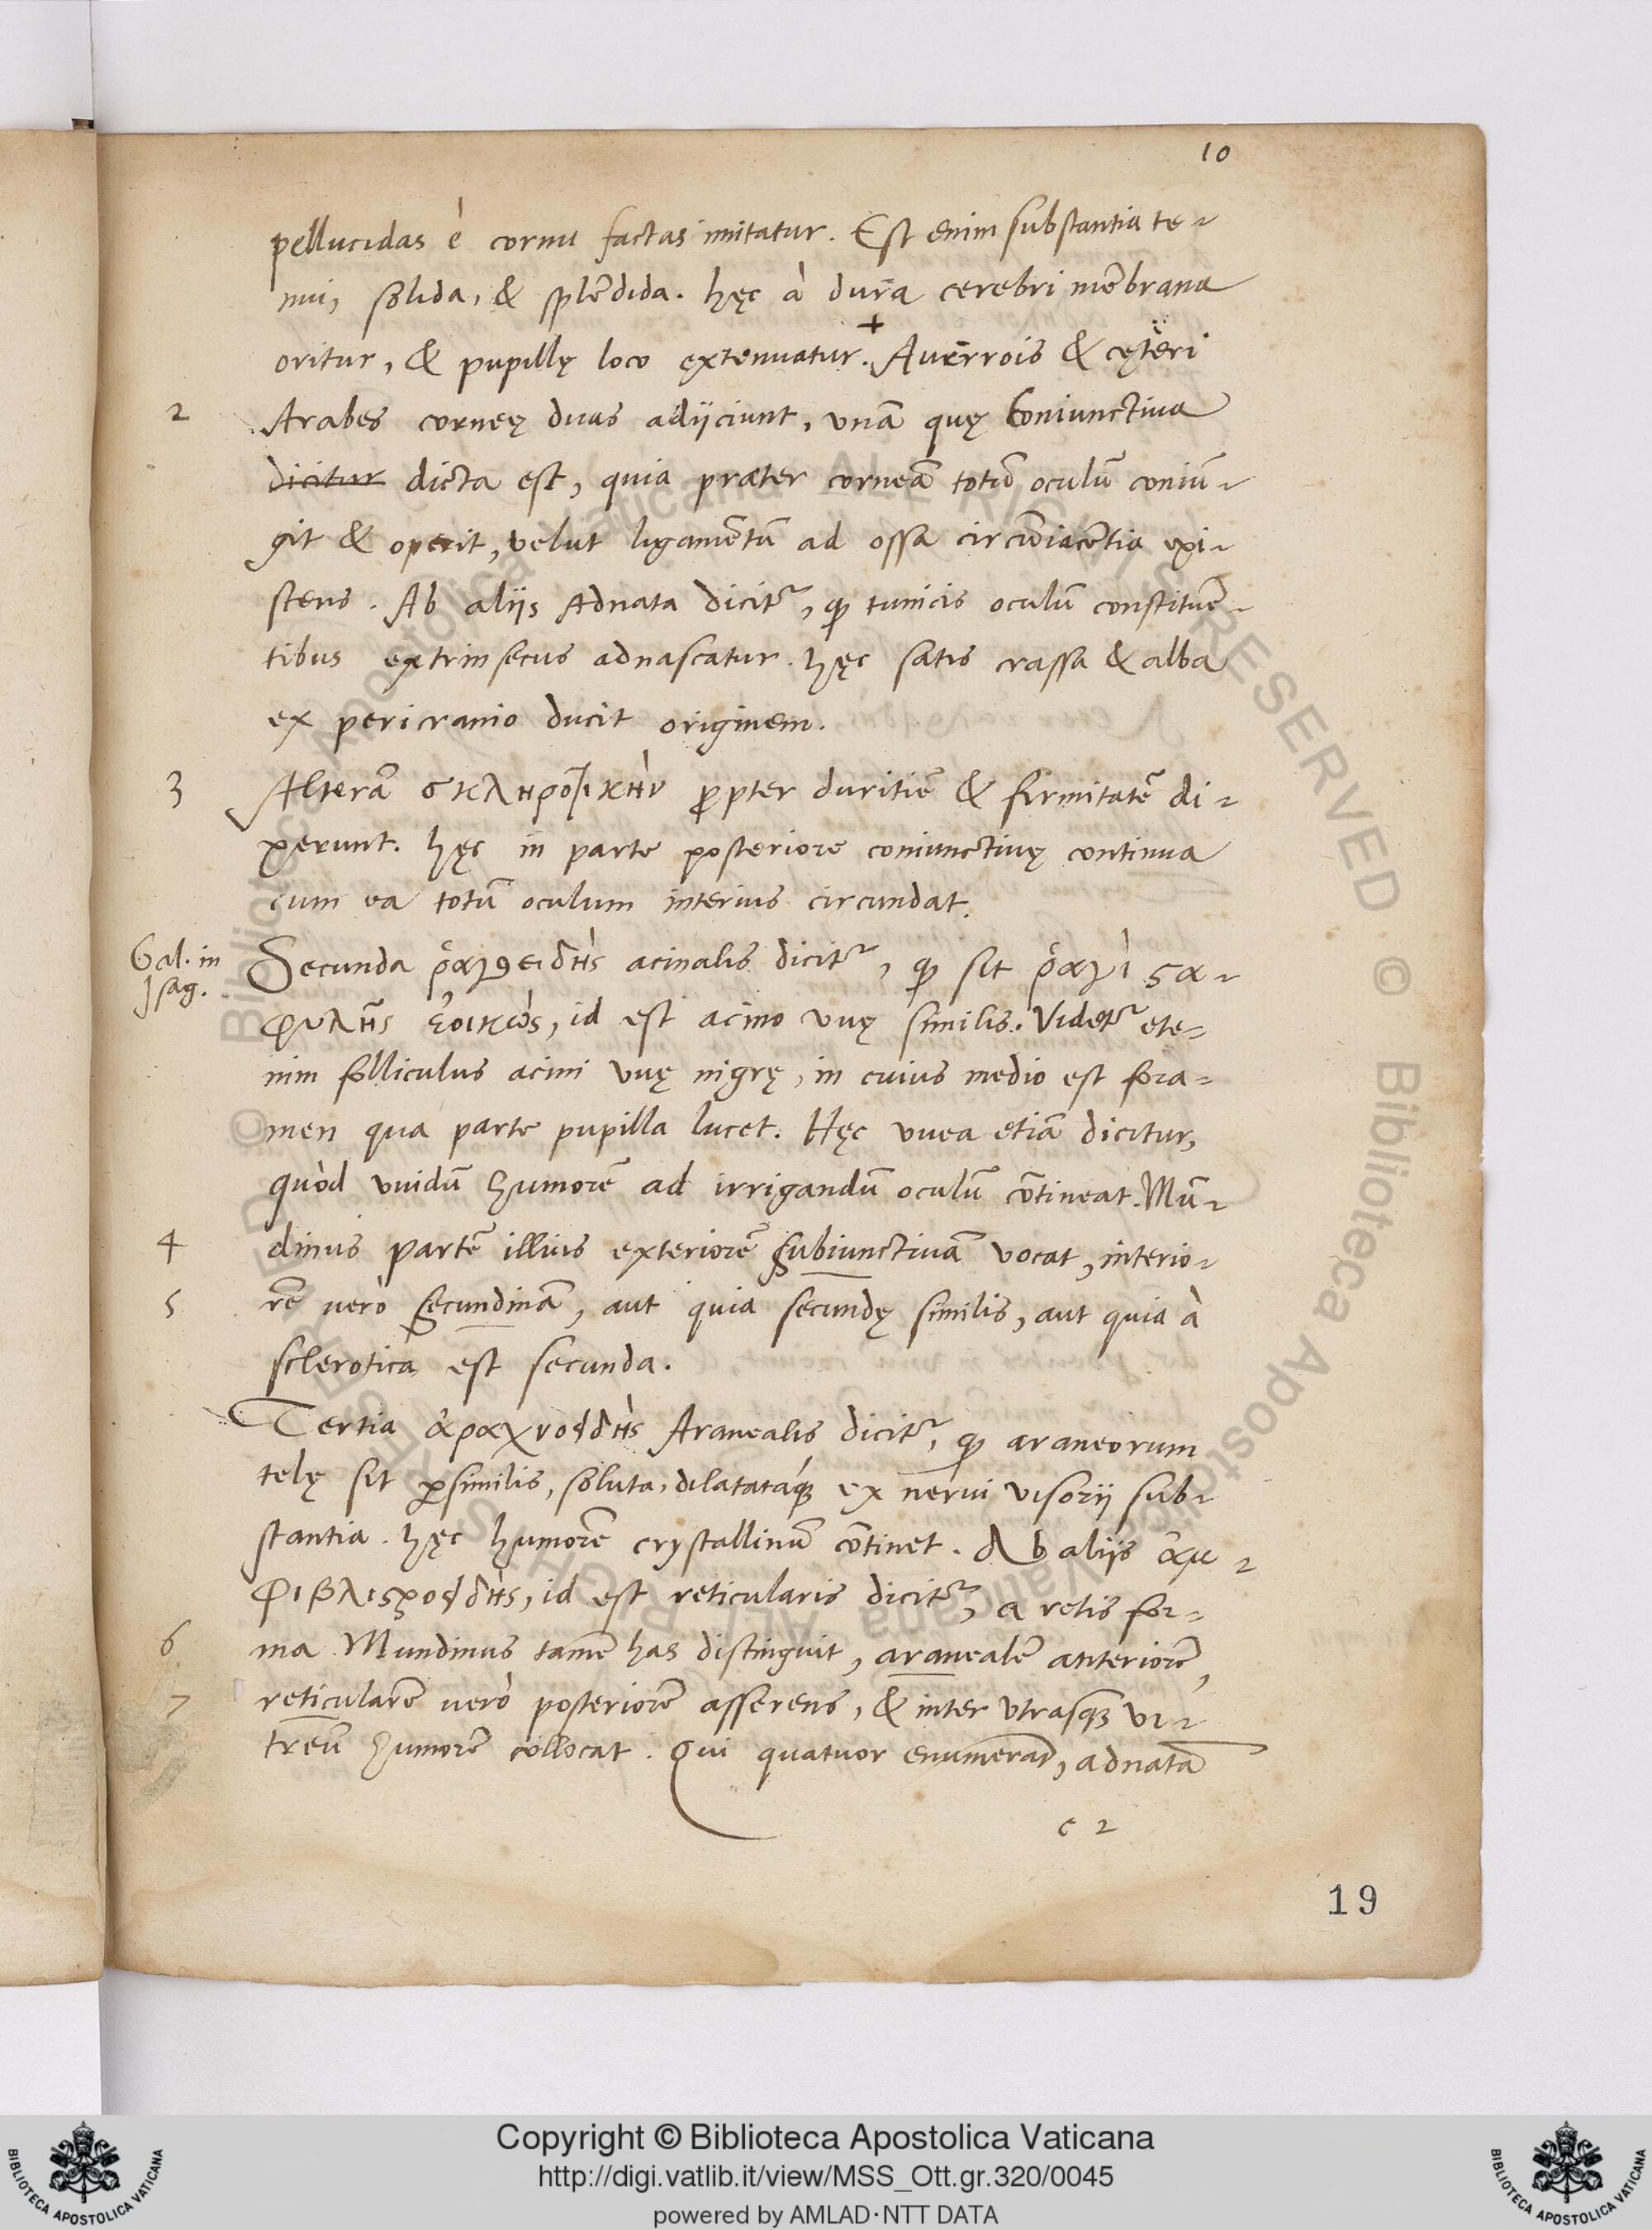 10
pellucidas è cornu factas imitatur. Est enim substantia te-
nui, solida, & splẽdida. hęc à dura cerebri mẽbrana
oritur, & pupillę loco extenuatur. + Averrois & cęteri
2 Arabes corneę duas adijciunt, vnã quę Coniunctiua
dicitur dicta est, quia præter corneã totũ oculũ coniũ-
git & operit, velut ligamẽtũ ad ossa circũiacẽtia exi-
stens. Ab alijs Adnata dicit᷑, ꝙ tunicis oculũ constituẽ-
tibus extrinsecus adnascatur. hęc satis crassa & alba
ex pericranio ducit originem.
3 Alterã σκληροτικὴν ꝓpter duritiẽ & firmitatẽ di-
xerunt. hęc in parte posteriore coniunctiuę continua
cum ea totũ oculum interius circundat.
Gal. in
Isag.
Secunda ῥαγοειδὴς acinalis dicit᷑, ꝙ sit ῥαγὶ ϛα-
φυλῆς ἐοικὼς, id est acino vuę similis. Videt᷑ ete-
nim folliculus acini vuę nigrę, in cuius medio est fora-
men qua parte pupilla lucet. Hęc vuea etiã dicitur,
quòd vuidũ humorẽ ad irrigandũ oculũ cõtineat. Mũ-
4 dinus partẽ illius exteriorẽ subiunctiuã vocat, interio-
5 rẽ uerò secundinã, aut quia secundę similis, aut quia à
sclerotica est secunda.
Tertia ἀραχνοιδὴς Aranealis dicit᷑, ꝙ araneorum
telę sit ꝑsimilis, soluta, dilatatáqꝫ ex nerui visorij sub-
stantia. hęc humorẽ crystallinũ cõtinet. Ab alijs ἀμ-
φιβλιϛροιδὴς, id est reticularis dicit᷑, a retis for-
6 ma. Mundinus tamẽ has distinguit, aranealẽ anteriorẽ,
7 reticularẽ uerò posteriorẽ asserens, & inter vtrasqꝫ vi-
treũ humorẽ collocat. Qui quatuor enumerãt, adnatã
c 2
19
BIBLIOTECA APOSTOLICA VATICANA
Copyright © Biblioteca Apostolica Vaticana
http://digi.vatlib.it/view/MSS_Ott.gr.320/0045
powered by AMLAD·NTT DATA
BIBLIOTECA APOSTOLICA VATICANA